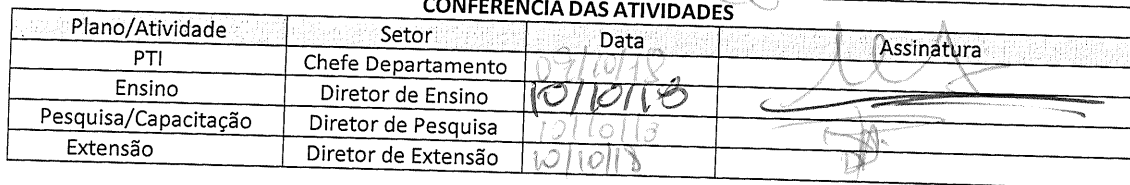 CONFERÊNCIA DAS ATIVIDADES
Plano/Atividade Setor Data Assinatura
PTI Chefe Departamento 09/10/18
Ensino Diretor de Ensino 10/10/18
Pesquisa/Capacitação Diretor de Pesquisa 10/10/18
Extensão Diretor de Extensão 10/10/18